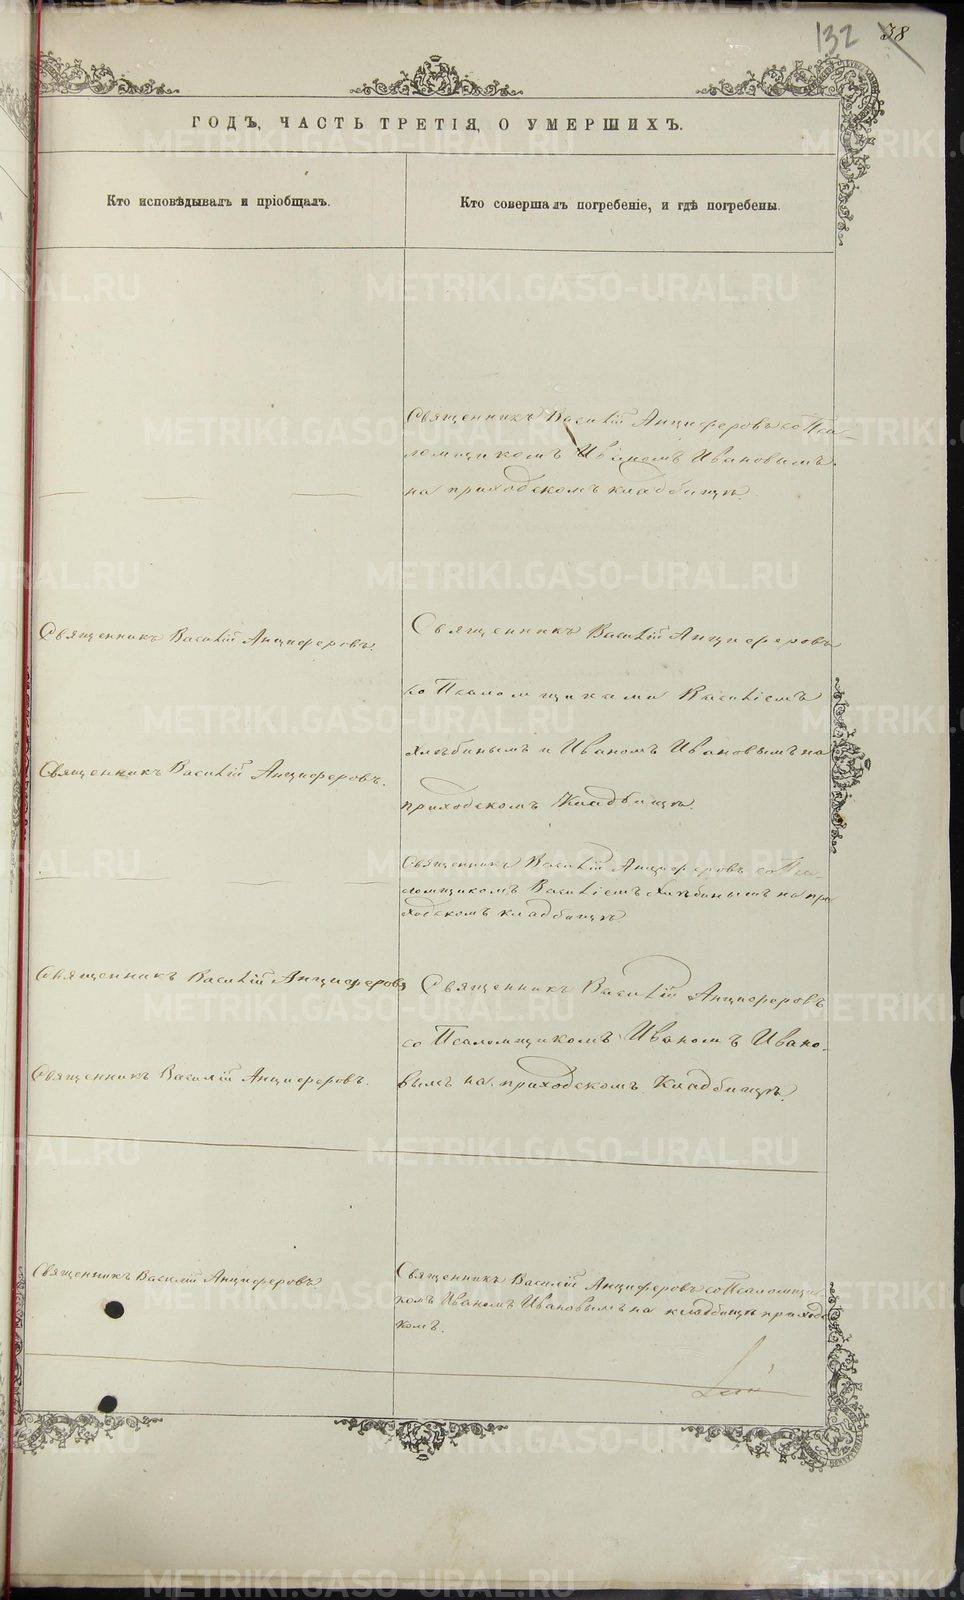 132 38
ГОДЪ, ЧАСТЬ ТРЕТІЯ, О УМЕРШИХЪ.
Кто исповѣдывалъ и пріобщалъ.
Кто совершалъ погребеніе, и гдѣ погребены.
Священникъ Василій Анциферовъ со Пса-
ломщикомъ Иваномъ Ивановымъ.
на приходскомъ кладбищѣ.
Священникъ Василій Анциферовъ.
Священникъ Василій Анциферовъ
со Псаломщиками Василіемъ
Хлѣбинымъ и Иваномъ Ивановымъ на
приходскомъ Кладбищѣ.
Священникъ Василій Анциферовъ.
Священникъ Василій Анциферовъ со Пса-
ломщикомъ Василіемъ Хлѣбинымъ на при
ходскомъ кладбищѣ.
Священникъ Василій Анциферовъ
Священникъ Василій Анциферовъ
со Псаломщикомъ Иваномъ Ивано-
вымъ на приходскомъ Кладбищѣ.
Священникъ Василій Анциферовъ.
Священникъ Василій Анциферовъ
Священникъ Василій Анциферовъ со Псаломщи
комъ Иваномъ Ивановымъ на кладбищѣ приходс
комъ.
METRIKI.GASO-URAL.RU